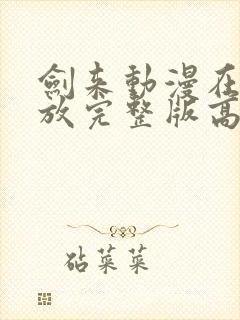 劍来動漫在
放完整版高
砧菜菜